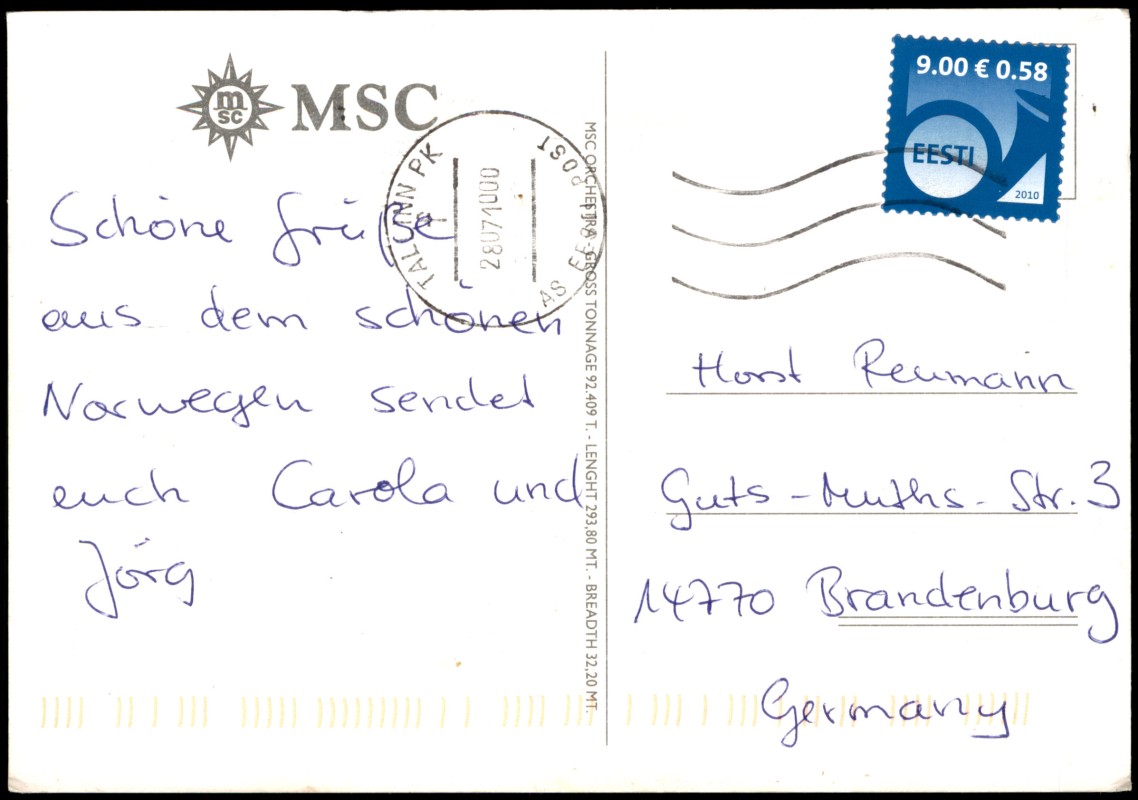 m
sc
MSC
Schöne Grüße
aus dem schönen
Norwegen sendet
euch Carola und
Jörg
TALLINN PK
28071000
AS EESTI POST
MSC ORCHESTRA - GROSS TONNAGE 92.409 T. - LENGHT 293,80 MT. - BREADTH 32,20 MT.
9.00 € 0.58
EESTI
2010
Horst Reumann
Guts-Muths-Str. 3
14770 Brandenburg
Germany